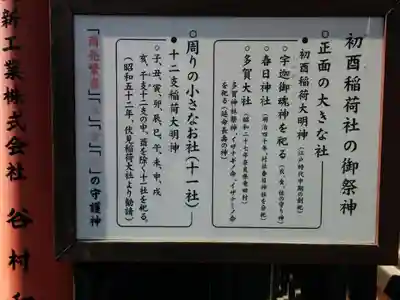 初酉稲荷社の御祭神
○正面の大きな社―
・初酉稲荷大明神（江戸時代中期の創祀）
○宇迦御魂神を祀る（衣、食、住の守り神）
○春日神社（明治四十年、村社春日神社を分祀）
○多賀大社（昭和二十七年奈良県竜田村）
多賀神社祭神、イザナギノ命、イザナミノ命
を祀る（延命長寿の神）
○周りの小さなお社（十一社）―
・十二支稲荷大明神
○子、丑、寅、卯、辰、巳、午、未、申、戌
亥、干支十二支の中、酉を除く十一社を祀る。
（昭和五十二年、伏見稲荷大社より勧請）
「商売繁盛」、「」、「」、「」の守護神
新工業株式会社 谷村